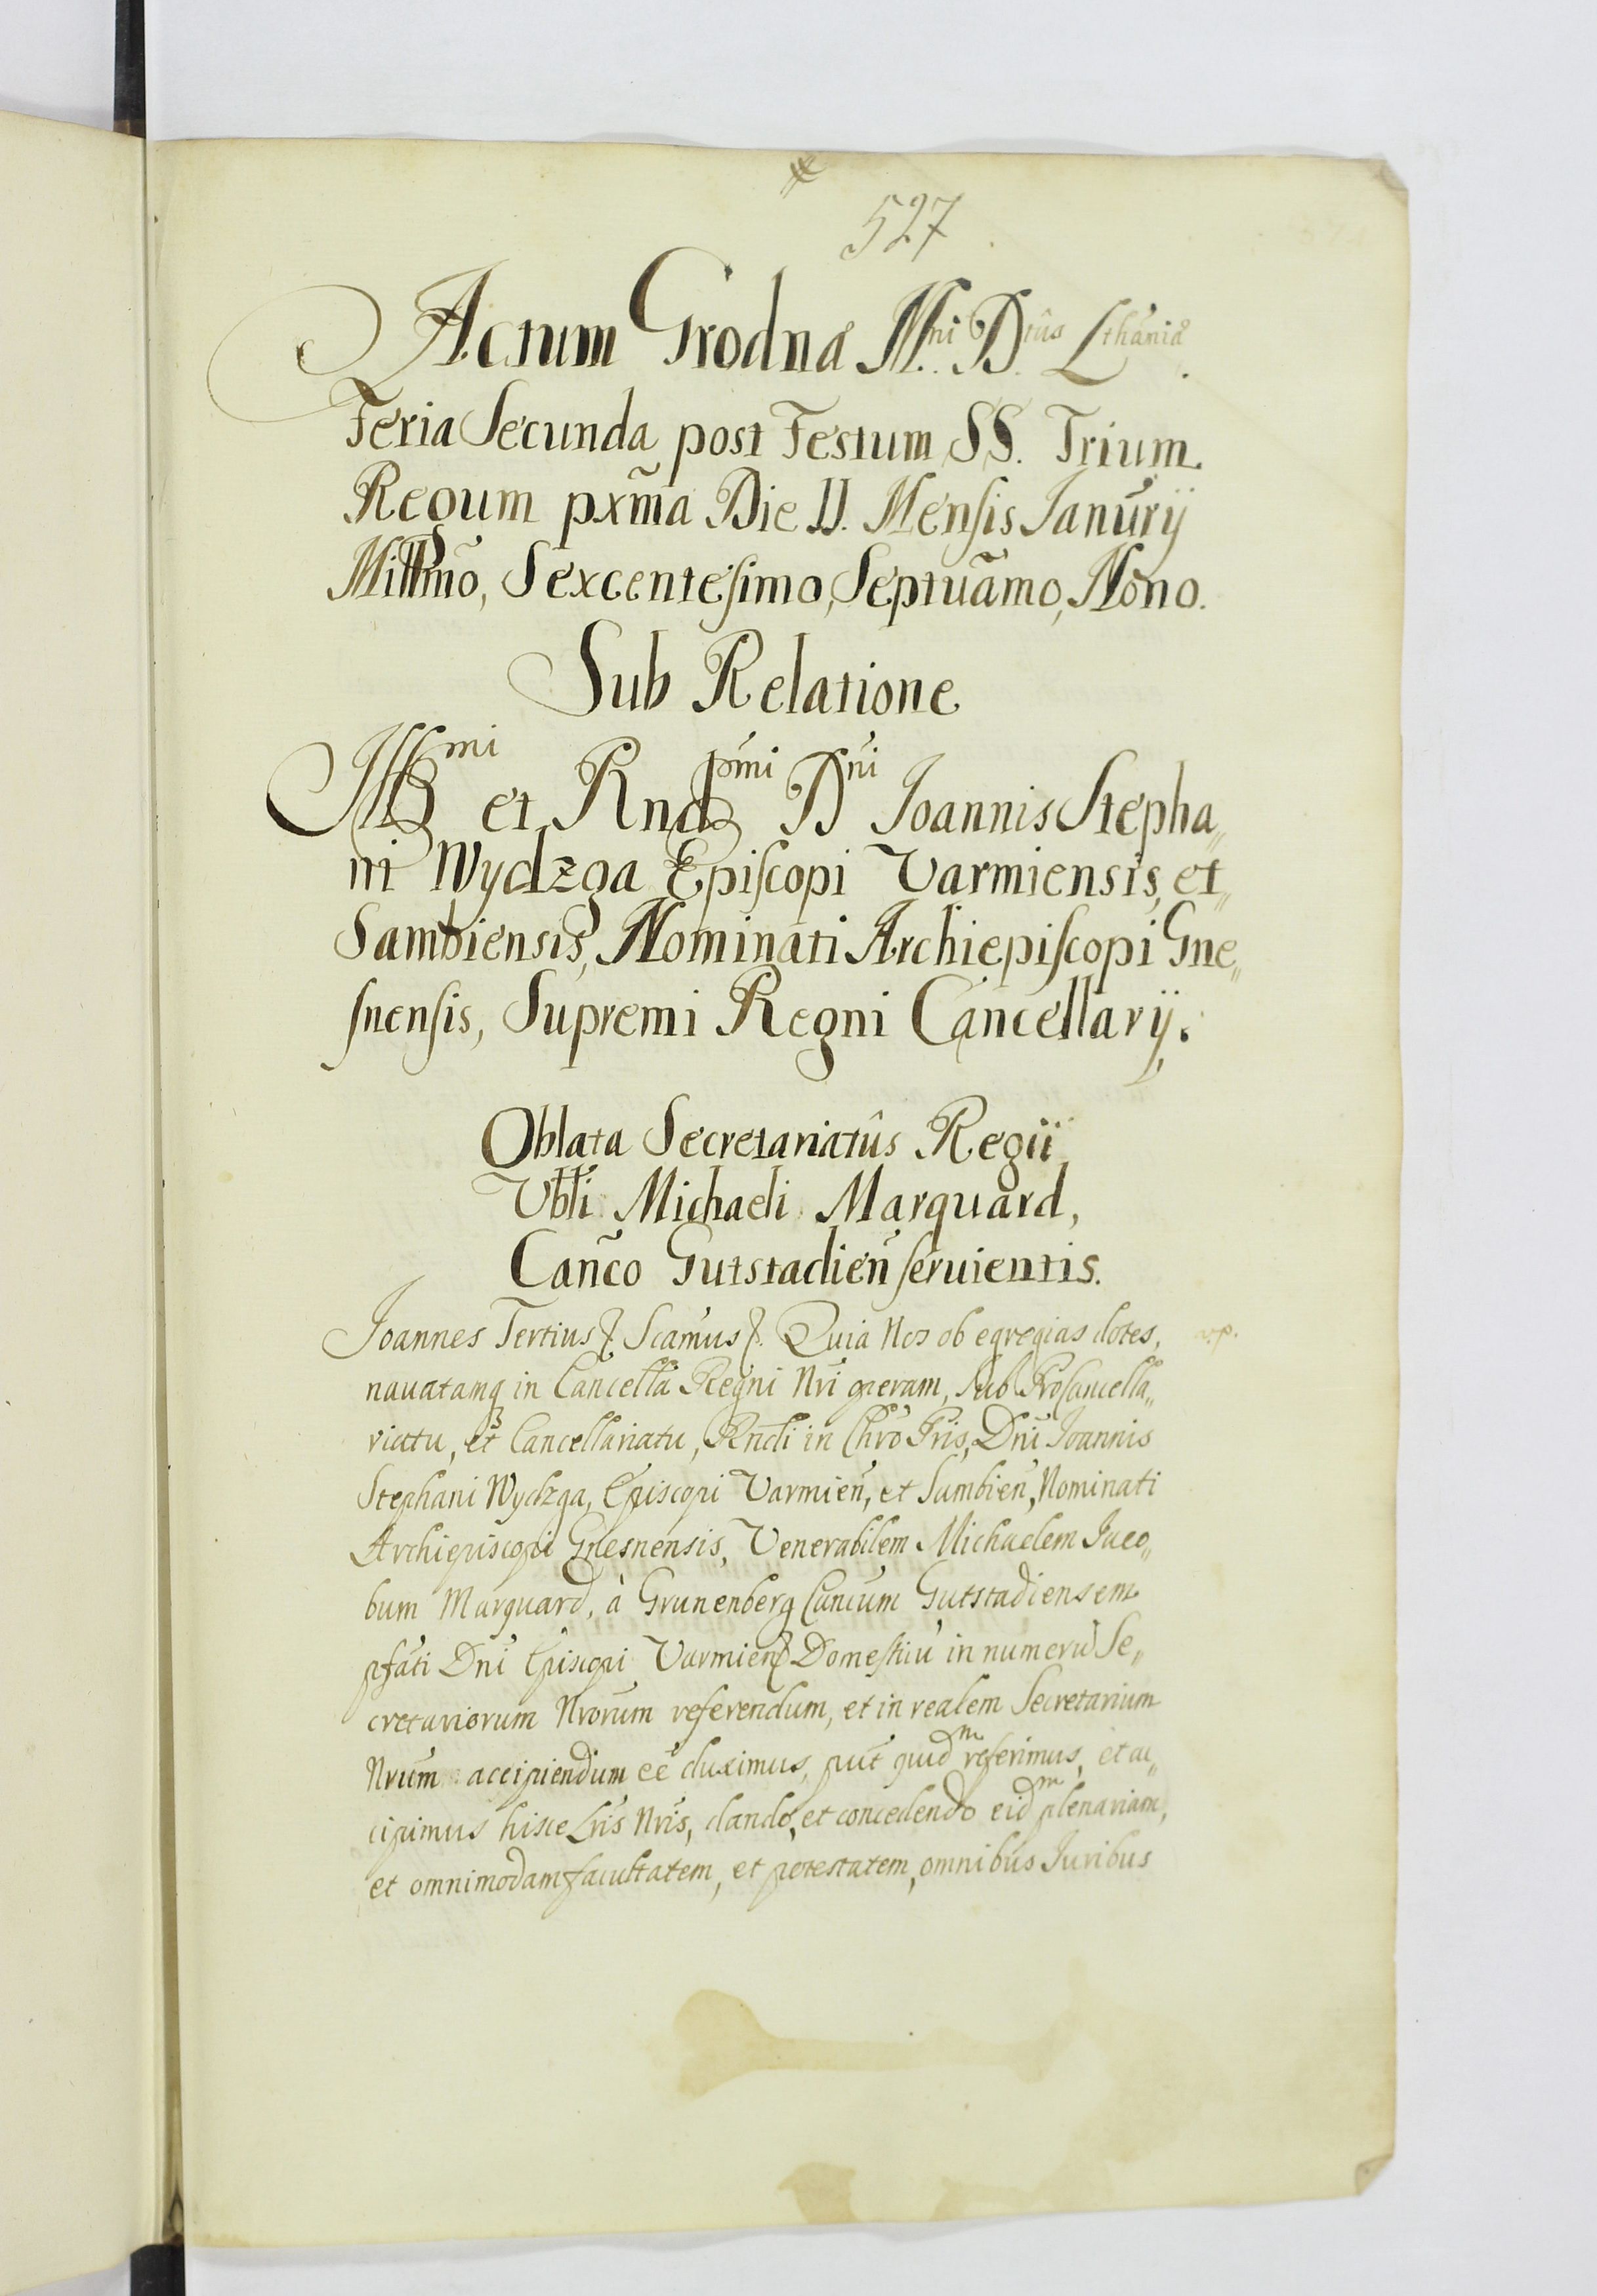 527
Actum Grodnæ M.ni D.tûs Lthaniæ.
Feria Secunda post Festum SS. Trium
Regum pxm̃a Die II. Mensis Janúrÿ
Millm̃o, Sexcentesimo, Septuãmo, Nono.
Sub Relatione
Illmi et Rndmi Dni Joannis Stepha„
ni Wydzga Episcopi Varmiensis, et„
Sambiensis, Nominati Archiepiscopi Gne„
snensis, Supremi Regni Cancellarÿ.
Oblata Secretariatûs Regii
Vbli Michaeli Marquard,
Cañco Gutstadieñ seruientis.
Joannes Tertius &. Scamus &. Quia Nos ob egregias dotes,
nauatamq in Cancellã Regni Nr̃i operam, sub ProCancella„
riatu, et Cancellariatu, Rñdi in Chr̃o Pris, Dñi Joannis
Stephani Wydzga, Episcopi Varmieñ, et Sambieñ, Nominati
Archiepiscopi Gnesnensis, Venerabilem Michaelem Jaco„
bum Marquard, à Grunenberg Cancum Gutstadiensem
pfati Dñi Episcopi Varmien Domesticũ in numerũ Se„
cretariorum Nrorum referendum, et in realem Secretarium
Nrum accipiendum eẽ duximus, put̃ quidm referimus, et ac„
cipimus hisce Lris Nris, dando, et concedendo eidm plenariam,
et omnimodam facultatem, et potestatem, omnibus Juribus